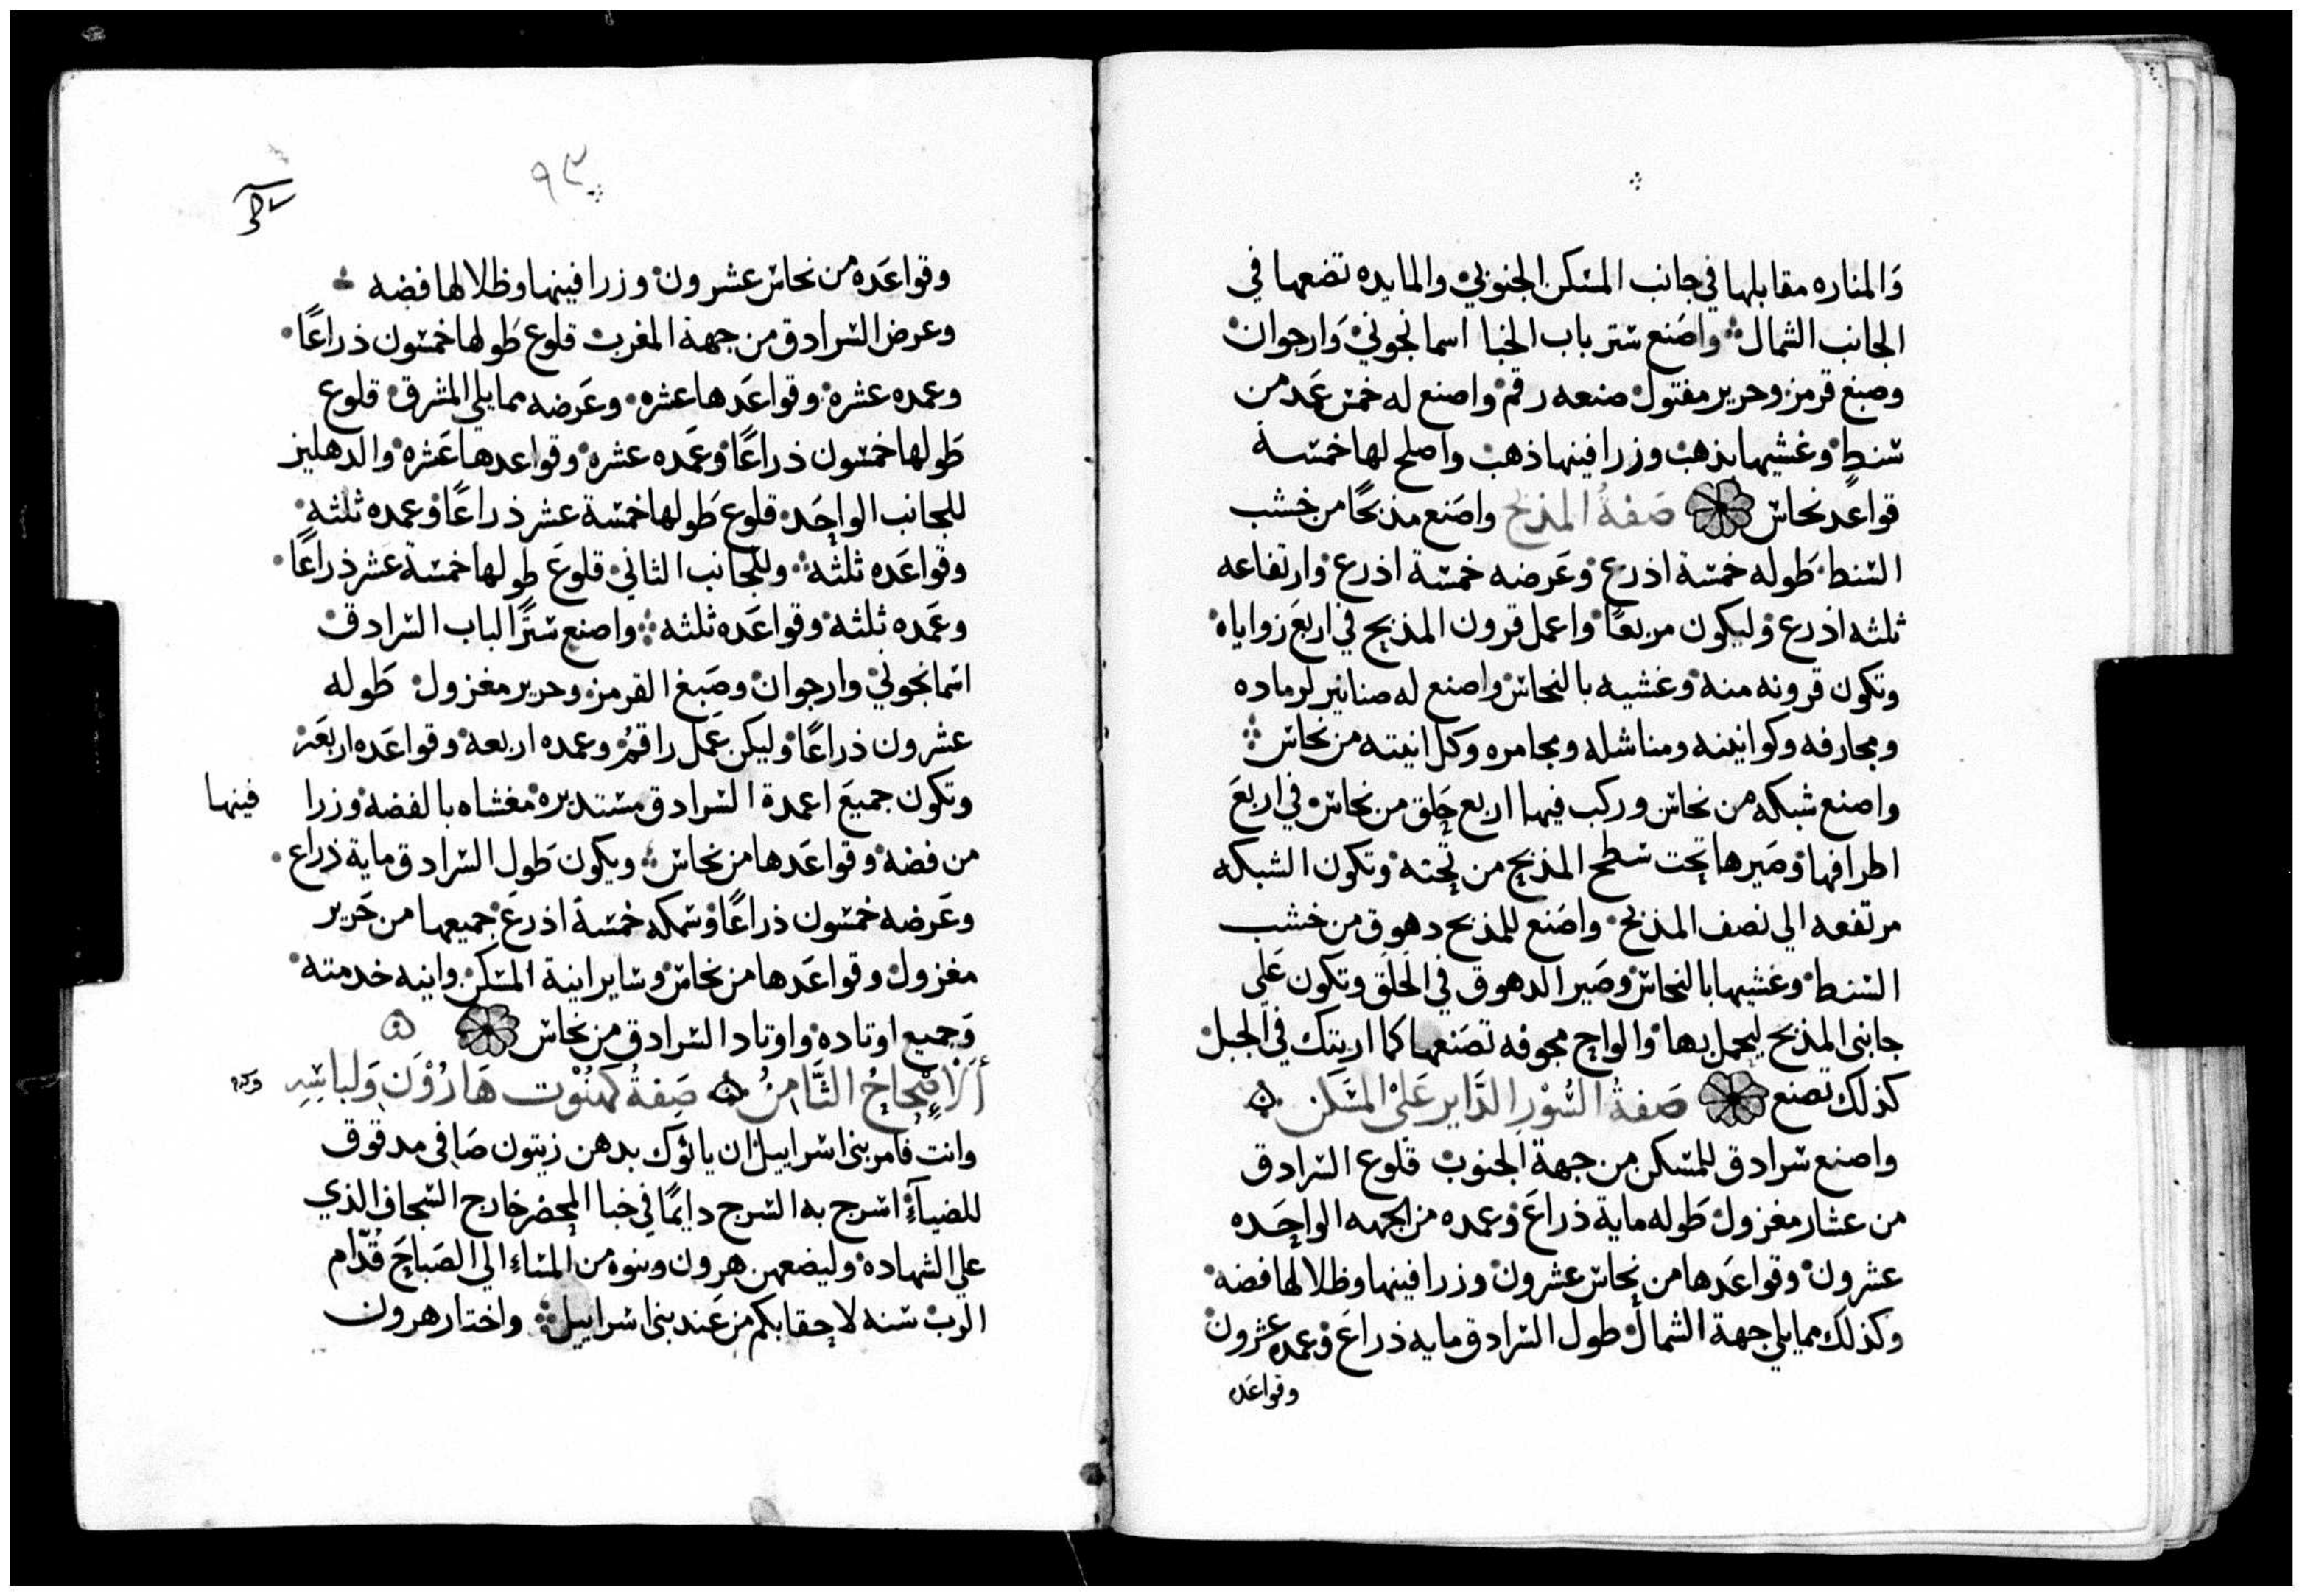 والمناره مقابلها في جانب المسكن الجنوبي والمايده تضعها في
الجانب الشمال واصنع ستر باب الخبا اسمانجوني وارجوان
وصبغ قرمز وحرير مفتول صنعه رقم واصنع له خمس عمد من
سنط وغشيها بذهب وزرافينها ذهب واصلح لها خمسة
قواعد نحاس صفة المذبح واصنع مذبحًا من خشب
السنط طوله خمسة اذرع وعرضه خمسة اذرع وارتفاعه
ثلثه اذرع وليكون مربعًا واعمل قرون المذبح في اربع زواياه
وتكون قرونه منه وغشيه بالنحاس واصنع له صنانير لرماده
ومجارفه وكوانينه ومناشله ومجامره وكل انيته من نحاس
واصنع شبكه من نحاس وركب فيها اربع حلق من نحاس في اربع
اطرافها وصيرها تحت سطح المذبح من تحته وتكون الشبكه
مرتفعه الي نصف المذبح واصنع للمذبح دهوق من خشب
السنط وغشيها بالنحاس وصير الدهوق في الحلق وتكون علي
جانبي المذبح ليحمل بها والواح مجوفه تصنعها كما اريتك في الجبل
كذلك تصنع صفة السور الداير علي المسكن
واصنع سرادق للمسكن من جهة الجنوب قلوع السرادق
من عشار مغزول طوله ماية ذراع وعمده من الجهه الواحده
عشرون وقواعدها من نحاس عشرون وزرافينها وظلالها فضه
وكذلك مما يلي جهة الشمال طول السرادق مايه ذراع وعمده عشرون
وقواعده
٩٣
وقواعده من نحاس عشرون وزرافينها وظلالها فضه
وعرض السرادق من جهة المغرب قلوع طولها خمسون ذراعًا
وعمده عشره وقواعدها عشره وعرضه مما يلي المشرق قلوع
طولها خمسون ذراعًا وعمده عشره وقواعدها عشره والدهليز
للجانب الواحد قلوع طولها خمسة عشر ذراعًا وعمده ثلثه
وقواعده ثلثه وللجانب الثاني قلوع طولها خمسة عشر ذراعًا
وعمده ثلثه وقواعده ثلثه واصنع سترًا لباب السرادق
اسمانجوني وارجوان وصبغ القرمز وحرير مغزول طوله
عشرون ذراعًا وليكن عمل راقم وعمده اربعه وقواعده اربعة
وتكون جميع اعمدة السرادق مستديره مغشاه بالفضه وزرا فينها
من فضه وقواعدها من نحاس ويكون طول السرادق ماية ذراع
وعرضه خمسون ذراعًا وسمكه خمسة اذرع جميعها من حرير
مغزول وقواعدها من نحاس وساير انية المسكن وانيه خدمته
وجميع اوتاده واوتاد السرادق من نحاس
الاصحاح الثامن صفة كهنوت هارون ولباسه
وانت فامر بني اسراييل ان ياتوك بدهن زيتون صافي مدقوق
للضياء اسرج به السرج دايمًا في خبا المحضر خارج السجاف الذي
علي الشهاده وليضعهن هرون وبنوه من المساء الي الصباح قدّام
الرب سنه لاحقابكم من عند بني اسراييل واختار هرون